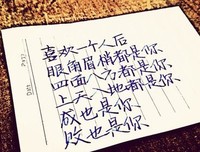 喜欢一个人后
眼角眉梢都是你
四面八方都是你
上天入地都是你
成也是你
败也是你
DATE